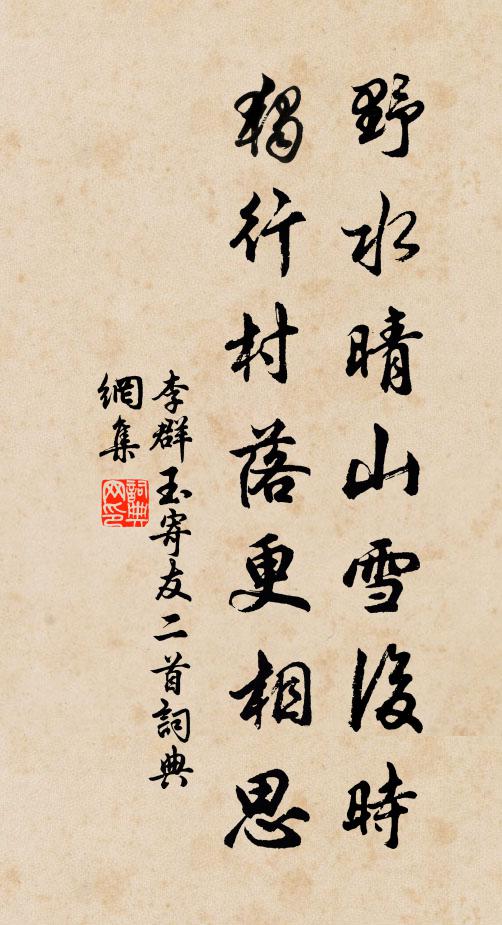 野水晴山雪後時
獨行村落更相思
李群玉寄友二首詞典
網集
詞典網印